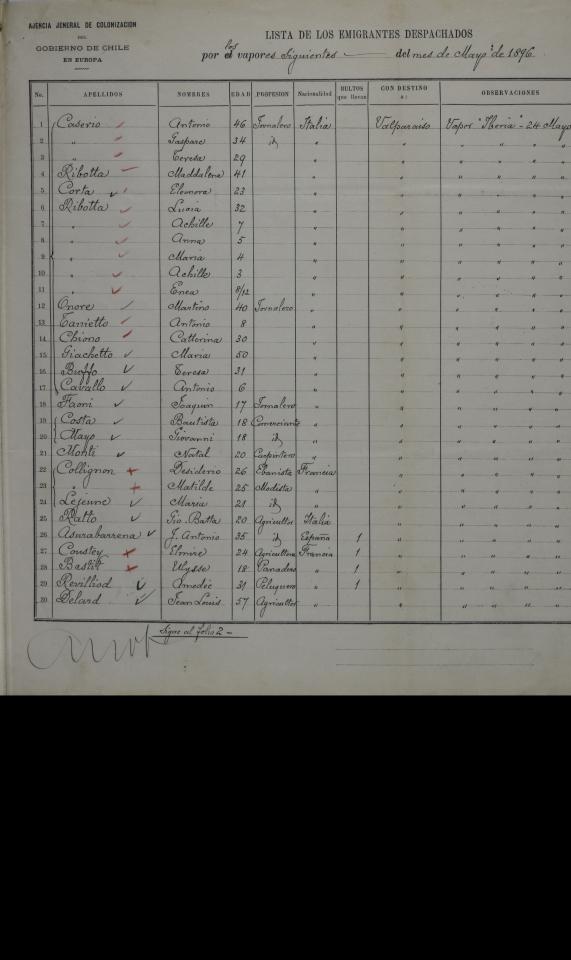 AJENCIA JENERAL DE COLONIZACION
DEL
GOBIERNO DE CHILE
EN EUROPA
LISTA DE LOS EMIGRANTES DESPACHADOS
por los vapores Siguientes del mes de Mayo de 1896.
No. APELLIDOS NOMBRES EDAD PROFESION Nacionalidad BULTOS que llevan CON DESTINO a: OBSERVACIONES
1 Caserio Antonio 46 Jornalero Italia Valparaiso Vapor "Iberia" - 24 Mayo
2 " Gaspare 34 id " " " " " "
3 " Teresa 29 " " " " " "
4 Ribotta Maddalena 41 " " " " " "
5 Corta Eleonora 23 " " " " " "
6 Ribotta Lucia 32 " " " " " "
7 " Achille 7 " " " " " "
8 " Anna 5 " " " " " "
9 " Maria 4 " " " " " "
10 " Achille 3 " " " " " "
11 " Enea 8/12 " " " " " "
12 Onore Martino 40 Jornalero " " " " " "
13 Tanietto Antonio 8 " " " " " "
14 Chiono Catterina 30 " " " " " "
15 Giachetto Maria 50 " " " " " "
16 Buffo Teresa 31 " " " " " "
17 Cavallo Antonio 6 " " " " " "
18 Faoni Joaquin 17 Jornalero " " " " " "
19 Costa Bautista 18 Comerciante " " " " " "
20 Mayo Giovanni 18 id " " " " " "
21 Monti Natal 20 Carpintero " " " " " "
22 Collignon Desiderio 26 Ebanista Francia " " " " "
23 " Matilde 25 Modista " " " " " "
24 Lejeune Maria 21 id " " " " " "
25 Ratto Gio. Batta 20 Agricultor Italia " " " " "
26 Asurabarrena J. Antonio 35 id España 1 " " " " "
27 Coustey Elmire 24 Agricultora Francia 1 " " " " "
28 Bastitt Ulysse 18 Panadero " 1 " " " " "
29 Revilliod Amedée 31 Peluquero " 1 " " " " "
30 Delard Jean Louis 57 Agricultor " " " " " "
Sigue al folio 2 -